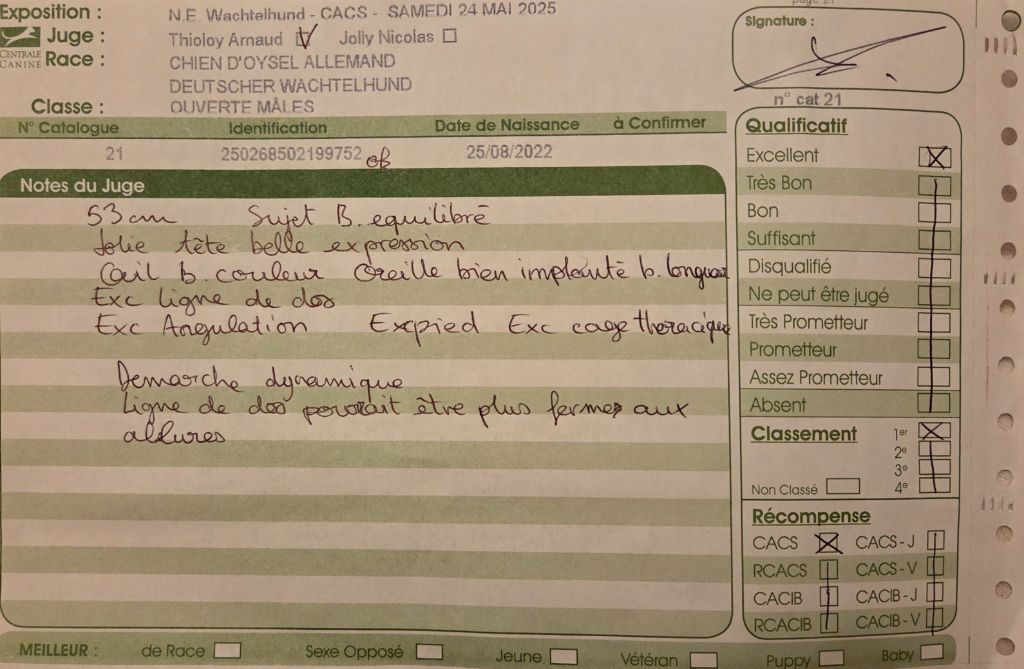 page 21
Exposition : N.E. Wachtelhund - CACS - SAMEDI 24 MAI 2025
Juge : Thioloy Arnaud Jolly Nicolas
CENTRALE CANINE
Race : CHIEN D'OYSEL ALLEMAND
DEUTSCHER WACHTELHUND
Classe : OUVERTE MÂLES
Signature :
n° cat 21
N° Catalogue Identification Date de Naissance à Confirmer
21 250268502199752 ok 25/08/2022
Notes du Juge
53 cm Sujet B. equilibré
Jolie tête belle expression
Œil B. couleur Oreille bien implanté b. longueur
Exc ligne de dos
Exc Angulation Exc pied Exc cage thoracique
Demarche dynamique
Ligne de dos pourrait être plus fermes aux
allures
Qualificatif
Excellent
Très Bon
Bon
Suffisant
Disqualifié
Ne peut être jugé
Très Prometteur
Prometteur
Assez Prometteur
Absent
Classement 1er
2e
3e
Non Classé 4e
Récompense
CACS CACS-J
RCACS CACS-V
CACIB CACIB-J
RCACIB CACIB-V
MEILLEUR : de Race Sexe Opposé Jeune Vétéran Puppy Baby